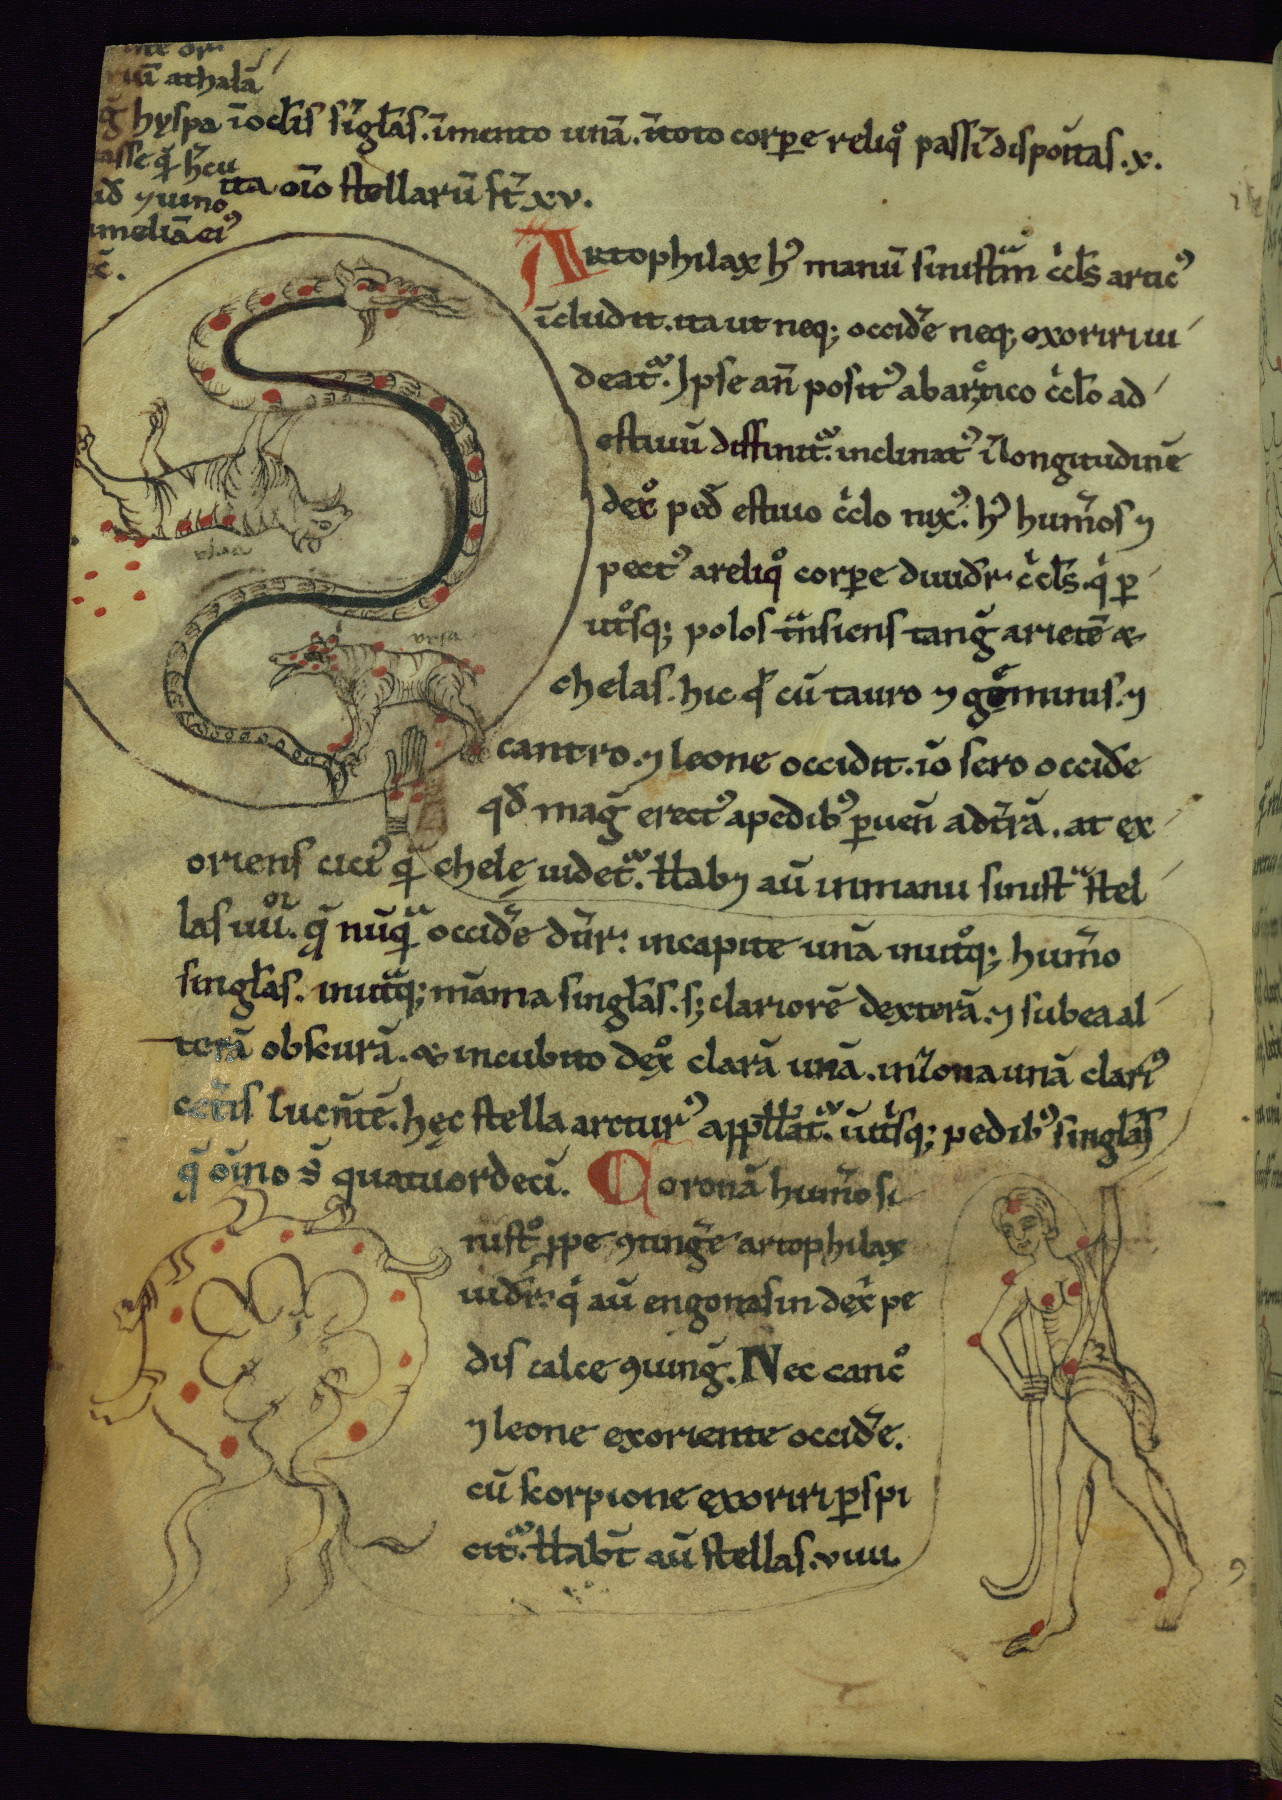 riũ athalã
hyspa ĩocl̃is sĩgl̃as. ĩmento unã. ĩtoto corꝑe reliqͦ passĩ dispoĩtas .x.
asse q̃ h̃cu
ita oĩo stellarũ st̃ xv.
meliã eiꝰ
Artophilax hꝰ manũ sinistrãm c̃cl̃s articꝰ
ĩcludit. ita ut neq; occid̃e neq; exoriri ui
deat᷑. Ipse aũ positꝰ abartico c̃cl̃o ad
estiuũ diffinit᷑. inclinatꝰ ĩ longitudinẽ
dexͦ ped̃ estiuo c̃clo nixꝰ. hꝰ hum̃os ⁊
pectꝰ areliqͦ corꝑe diuid̃r c̃cl̃s. q̃ ꝑ
ut̃sq; polos t̃nsiens tang̃ arietẽ &
chelas. hic q̃ cũ tauro ⁊ geminis. ⁊
cancro. ⁊ leone occidit. iõ sero occid̃e
qd̃ mag̃ erectꝰ apedibꝰ ꝑuen̄ adt̃rã. at ex
oriens citiꝰ q̃ chelę uidet᷑. Hab⁊ aũ inmanu sinistͣ stel
las iiii. q̃ nũqͣ occid̃e dr̃. incapite unã inut̃q; hum̃o
singl̃as. inut̃q; mãma singl̃as. s; clariorẽ dexterã. ⁊ subea al
terã obscurã. & incubito dexͦ clarã unã. inzona unã clariꝰ
cet̃is lucñtẽ. hęc stella arcturꝰ appellat᷑. ĩut̃sq; pedibꝰ singl̃as
q̃ oĩno s̃ quatuordecĩ. Coronã hum̃o si
nistͦ ꝓpe ꝯting̃e artophilax
uid̃r. q̃ aũ engonasin dext̃ pe
dis calce ꝯiung̃. Nec cancͦ
⁊ leone exoriente occid̃e.
cũ scorpione exoriri ꝑspi
cit᷑. Habt̃ aũ stellas .viiii.
ursa
ursa